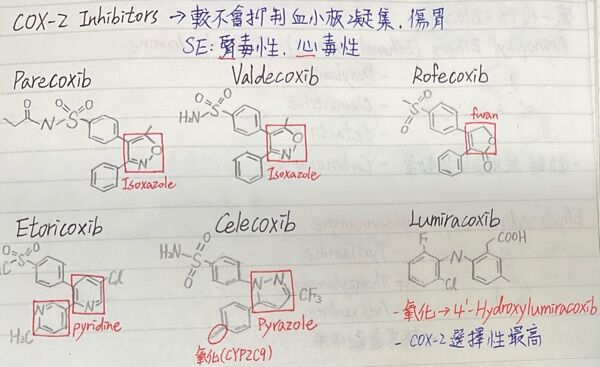 COX-2 Inhibitors → 較不會抑制血小板凝集、傷胃
SE: 腎毒性、心毒性
Parecoxib Valdecoxib Rofecoxib
O O O N S
H₂N O O S
O O S
furan
O N
Isoxazole
O N
Isoxazole
O O
Etoricoxib Celecoxib Lumiracoxib
O O S C Cl N N
pyridine
H₃C
H₂N O O S N N CF₃
Pyrazole
氧化(CYP2C9)
F COOH N Cl
- 氧化 → 4'-Hydroxylumiracoxib
- COX-2 選擇性最高